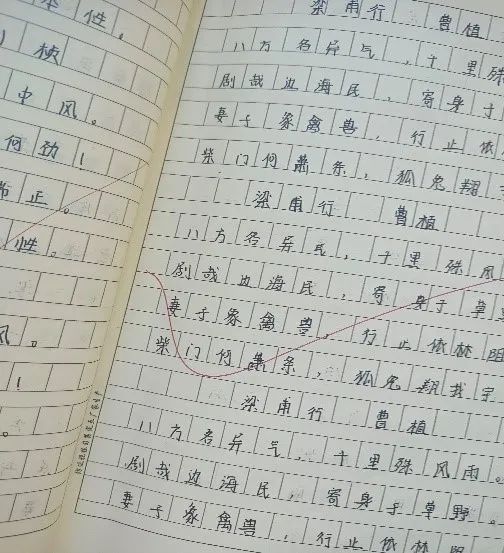 本性。
桢
中风。
何劲!
正。
性。
风。
!
梁甫行 曹植
八方各异气,千里殊
剧哉边海民,寄身于
妻子象禽兽,行止依
柴门何萧条,狐兔翔
梁甫行 曹植
八方各异民,千里殊风
剧哉边海民,寄身于草
妻子象禽兽,行止依林阻
柴门何萧条,狐兔翔我宇
梁甫行 曹植
八方各异气,千里殊风雨。
剧哉边海民,寄身于草野。
妻子象禽兽,行止依林